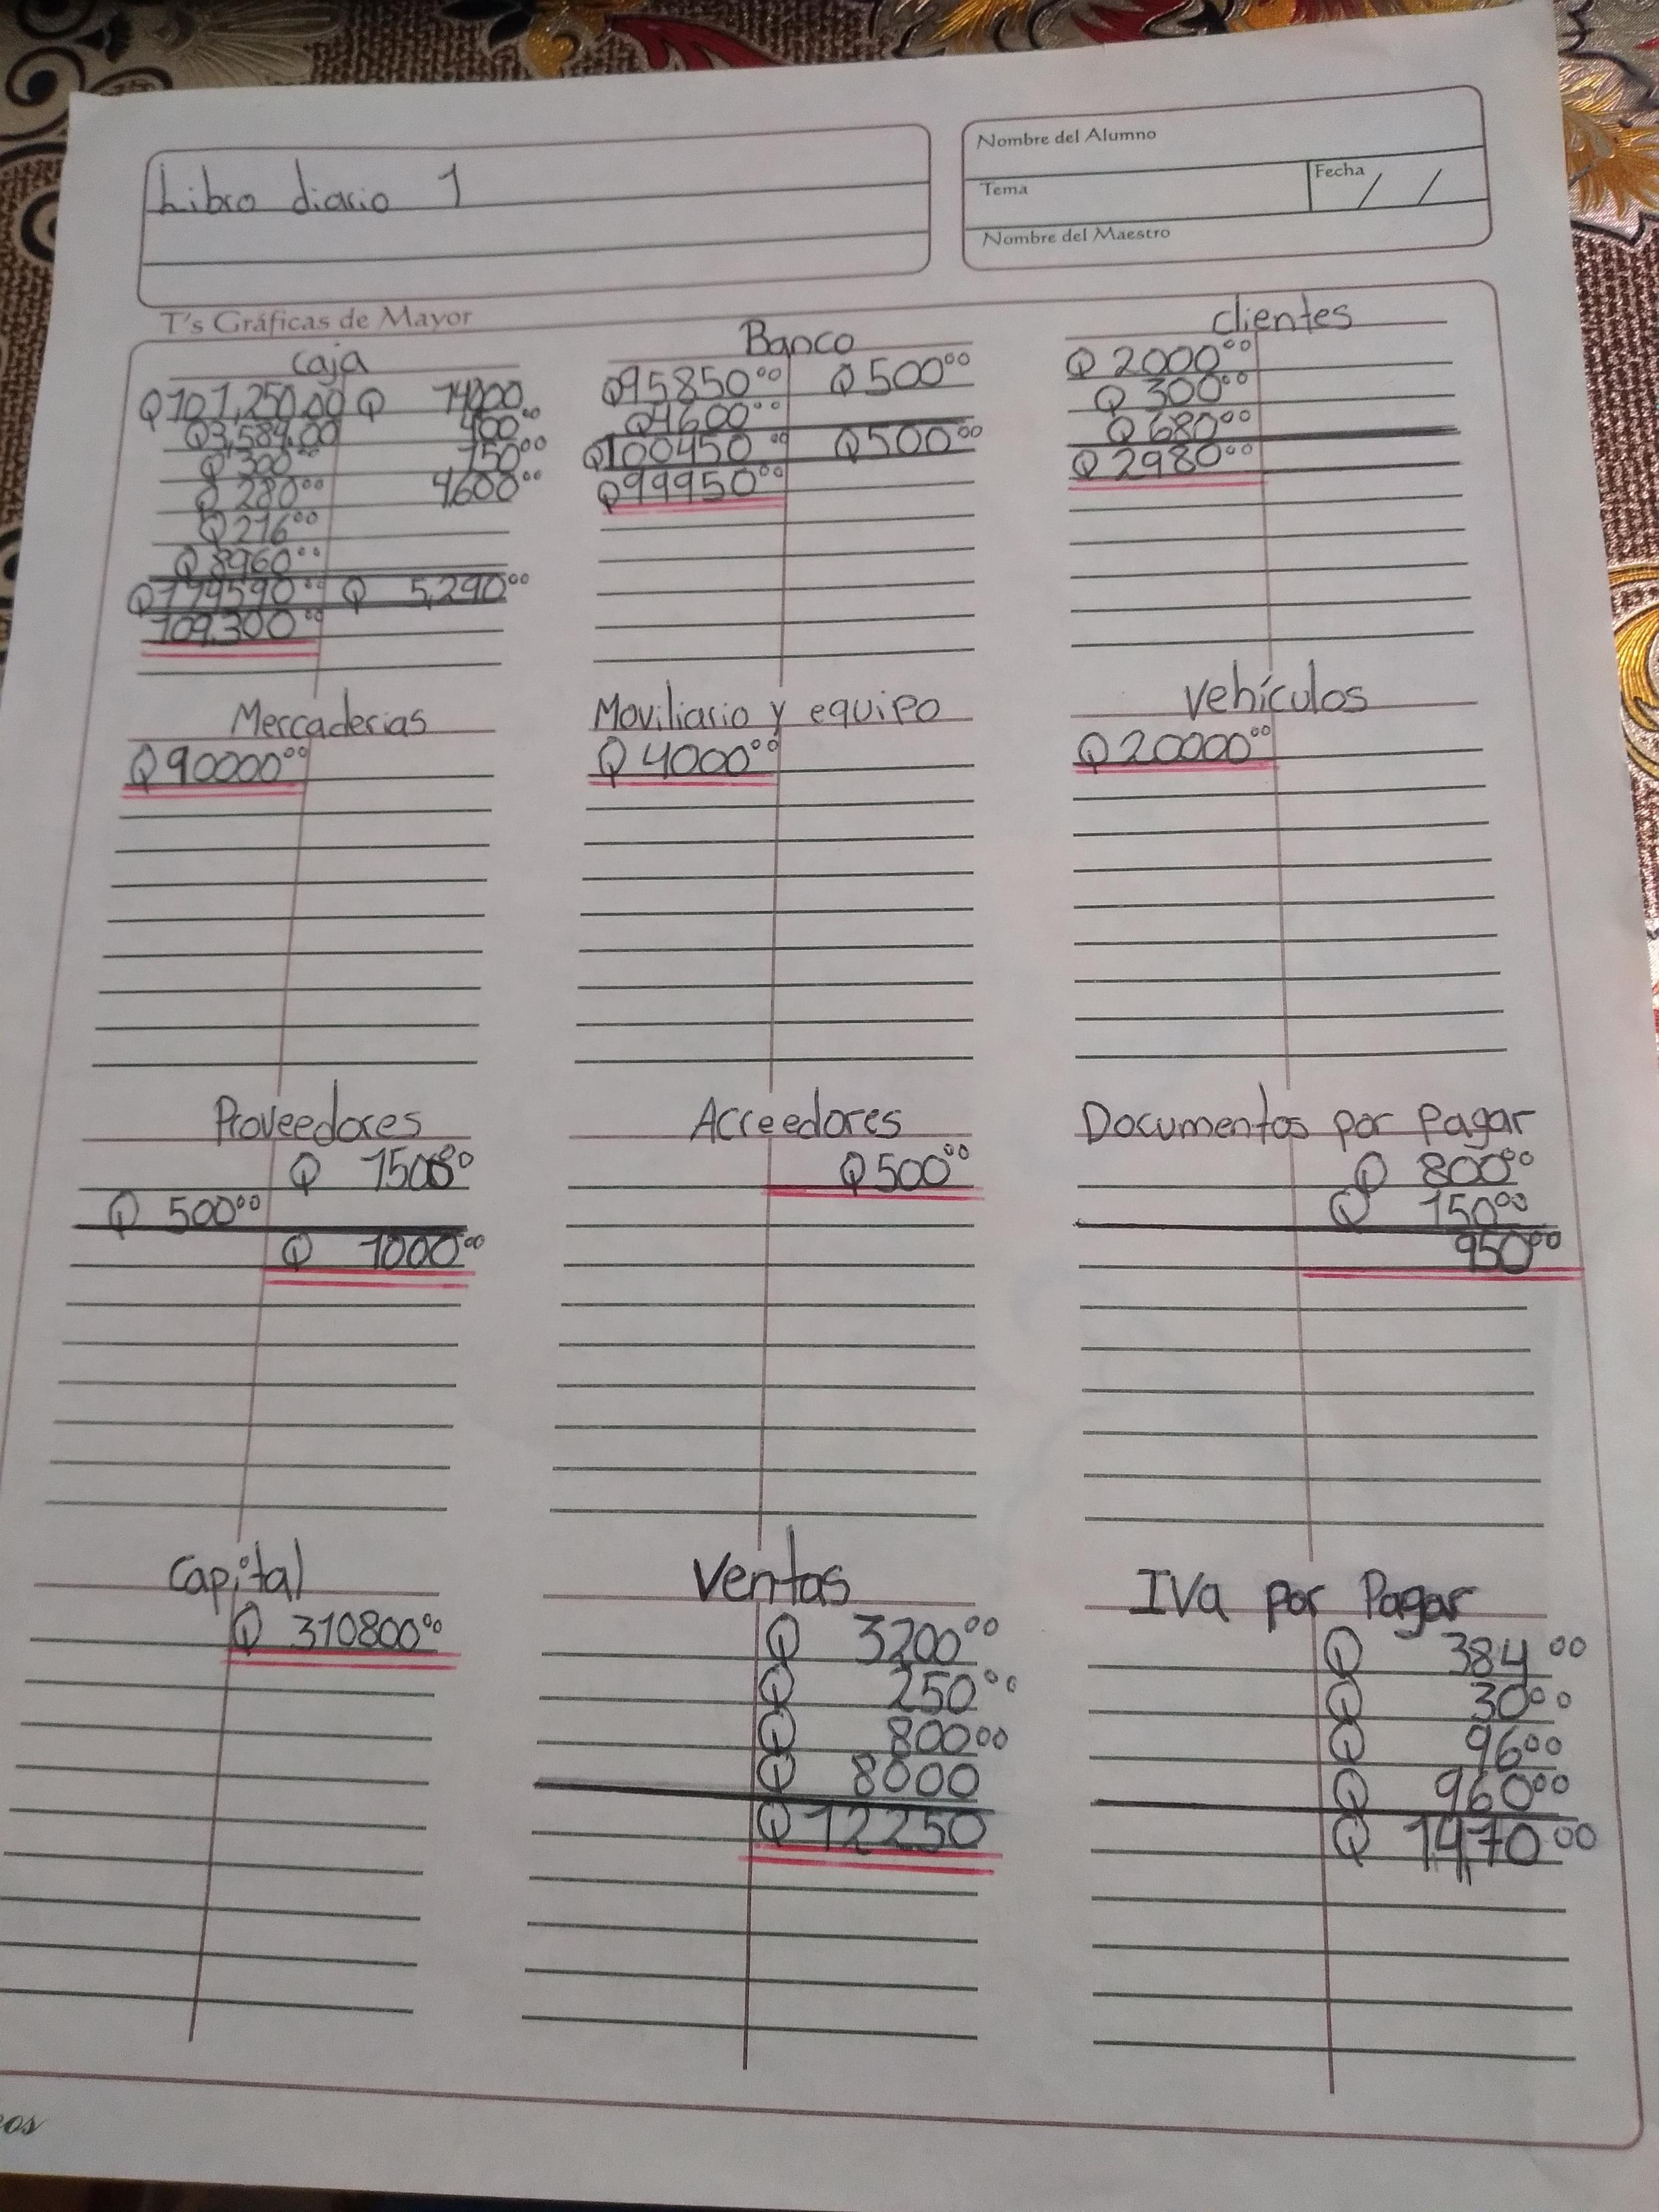 Libro diario 1
Nombre del Alumno
Tema
Fecha / /
Nombre del Maestro
T's Gráficas de Mayor
Caja
Q101,250.00 Q
Q3,584.00 400.00
Q 300.00 150.00
Q 280.00 4600.00
Q216.00
Q8960.00
Q114590.00 Q 5,290.00
109,300.00
Banco
Q95850.00 Q500.00
Q4600.00
Q100450.00 Q500.00
Q99950.00
Clientes
Q2000.00
Q300.00
Q680.00
Q2980.00
Mercaderias
Q90000.00
Moviliario y equipo
Q4000.00
Vehículos
Q20000.00
Proveedores
Q 1500.00
Q 500.00
Q 1000.00
Acreedores
Q500.00
Documentos por pagar
Q 800.00
Q 150.00
950.00
Capital
Q 310800.00
Ventas
Q 3200.00
Q 250.00
Q 800.00
Q 8000
Q12250
IVa por Pagar
Q 384.00
Q 30.00
Q 96.00
Q 960.00
Q 1,470.00
os